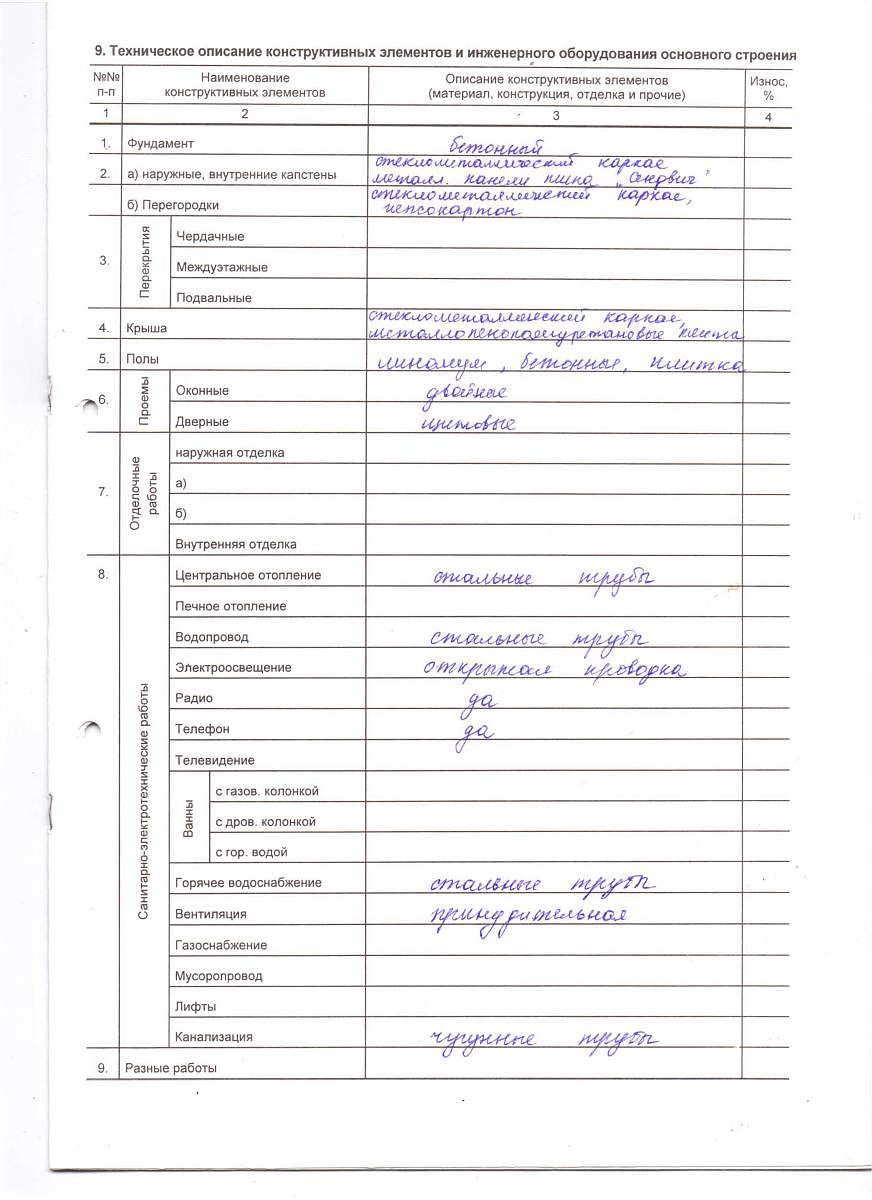 9. Техническое описание конструктивных элементов и инженерного оборудования основного строения
№№ п-п Наименование конструктивных элементов Описание конструктивных элементов (материал, конструкция, отделка и прочие) Износ, %
1 2 3 4
1. Фундамент бетонный
2. а) наружные, внутренние капстены стеклометаллический каркас
металл. панели типа „Сендвич"
б) Перегородки стеклометаллический каркас,
гипсокартон
3. Перекрытия
Чердачные
Междуэтажные
Подвальные
4. Крыша стеклометаллический каркас,
металлопенополеуретановые плита
5. Полы линолеум, бетонные, плитка
6. Проемы
Оконные двойные
Дверные щитовые
7. Отделочные работы
наружная отделка
а)
б)
Внутренняя отделка
8. Санитарно-электротехнические работы
Центральное отопление стальные трубы
Печное отопление
Водопровод стальные трубы
Электроосвещение открытая проводка
Радио да
Телефон да
Телевидение
Ванны
с газов. колонкой
с дров. колонкой
с гор. водой
Горячее водоснабжение стальные трубы
Вентиляция принудительная
Газоснабжение
Мусоропровод
Лифты
Канализация чугунные трубы
9. Разные работы